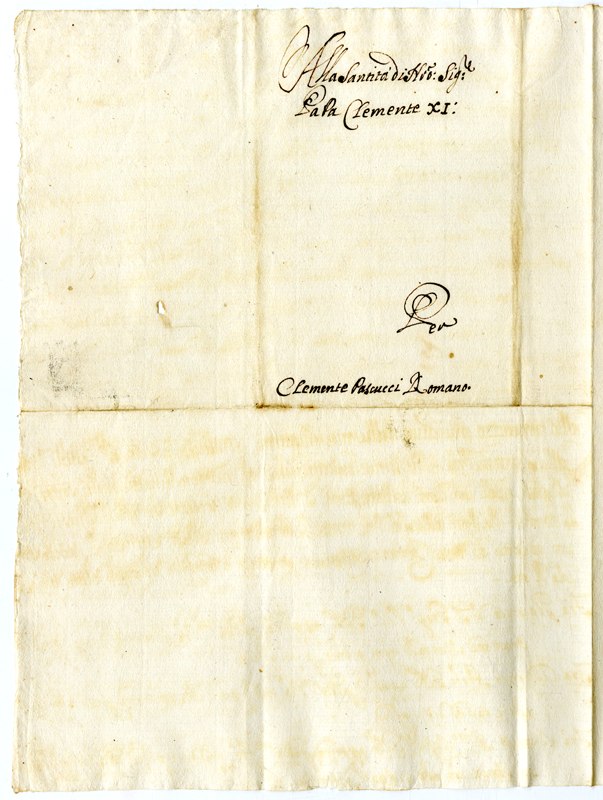 Alla Santità di Nro: Sigre:
Papa Clemente XI:
Per
Clemente Pascucci Romano.